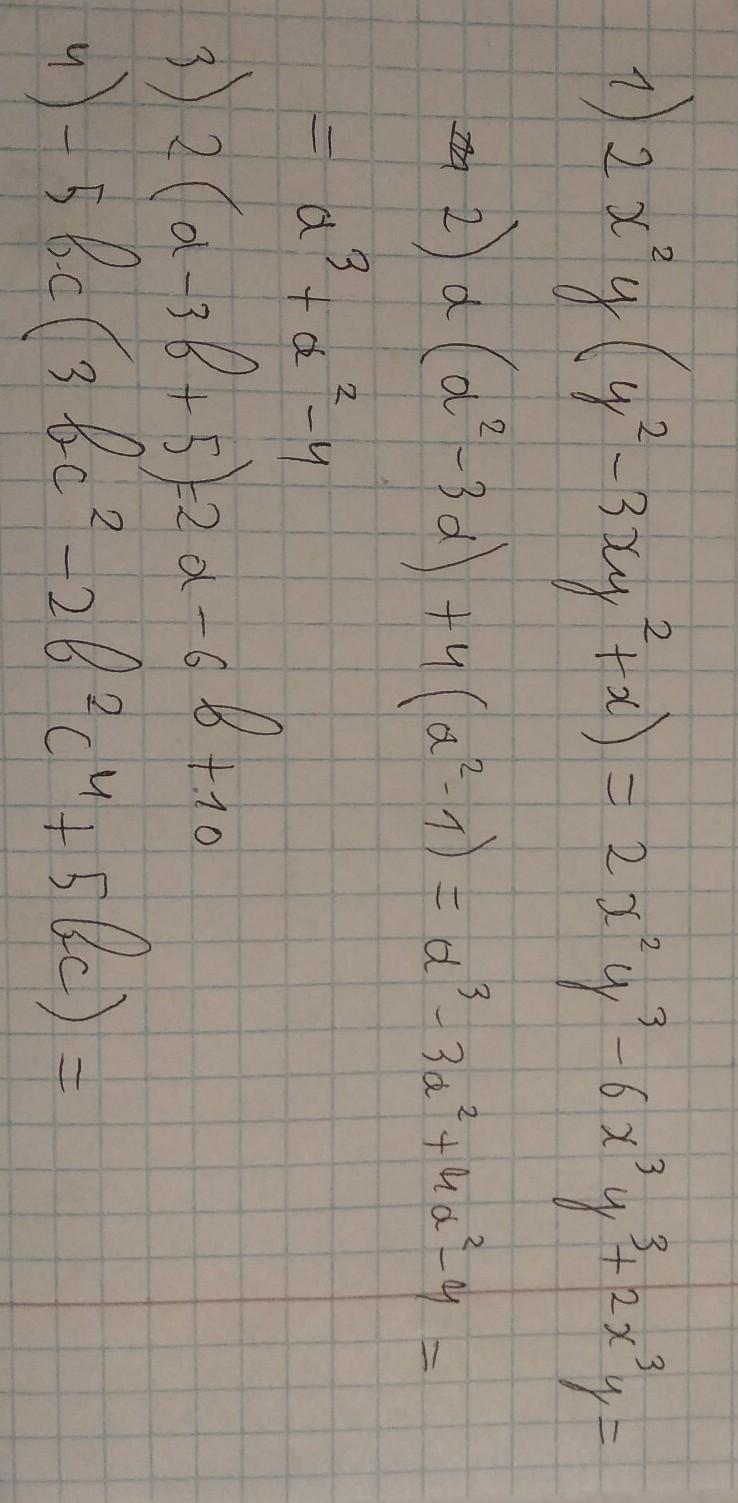 1) 2x²y(y² - 3xy² + x) = 2x²y³ - 6x³y³ + 2x³y =
2) a(a² - 3a) + 4(a² - 1) = a³ - 3a² + 4a² - 4 =
= a³ + a² - 4
3) 2(a - 3b + 5) = 2a - 6b + 10
4) - 5bc(3bc² - 2b²c⁴ + 5bc) =